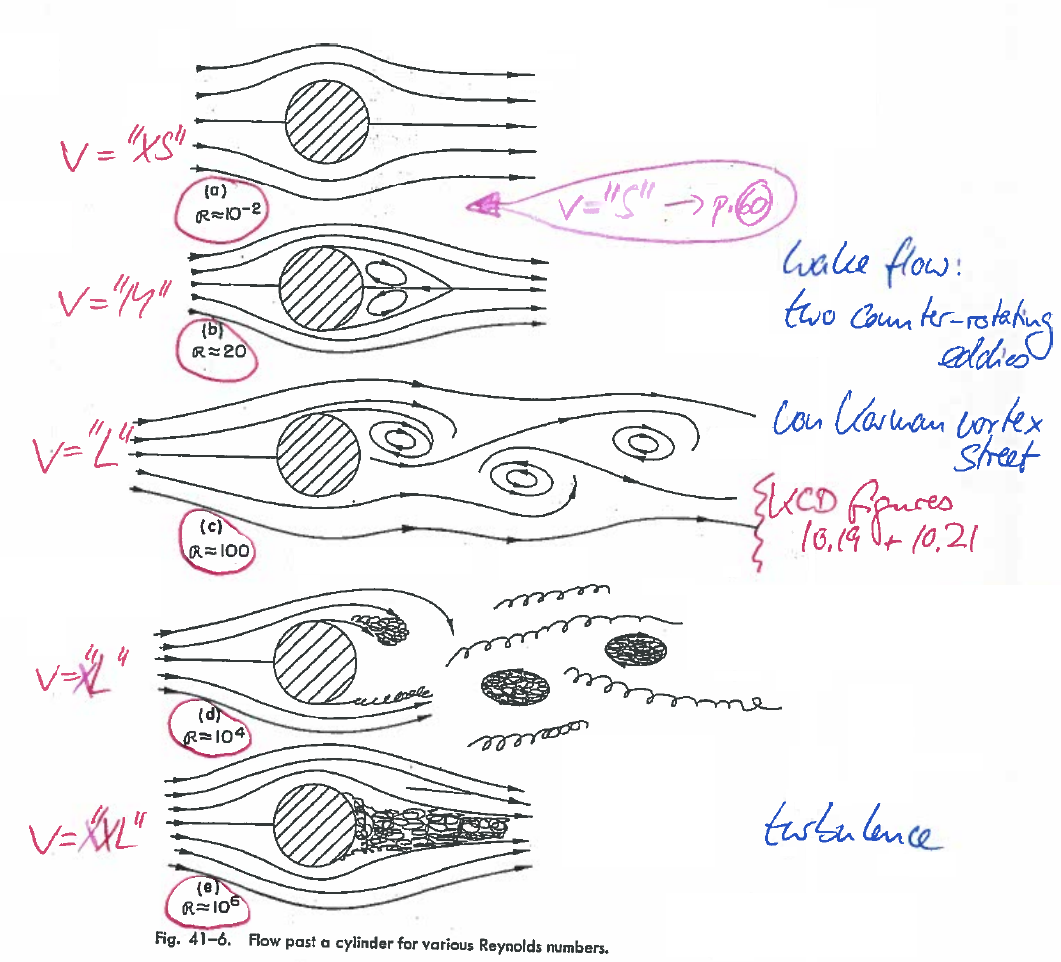 V = "XS"
(a)
R≈10⁻²
V="S" → p.60
V="M"
(b)
R≈20
wake flow:
two counter-rotating
eddies
V="L"
(c)
R≈100
von Karman vortex
street
KCD figures
10.19 + 10.21
V="XL"
(d)
R≈10⁴
V="XXL"
(e)
R≈10⁶
turbulence
Fig. 41-6. Flow past a cylinder for various Reynolds numbers.